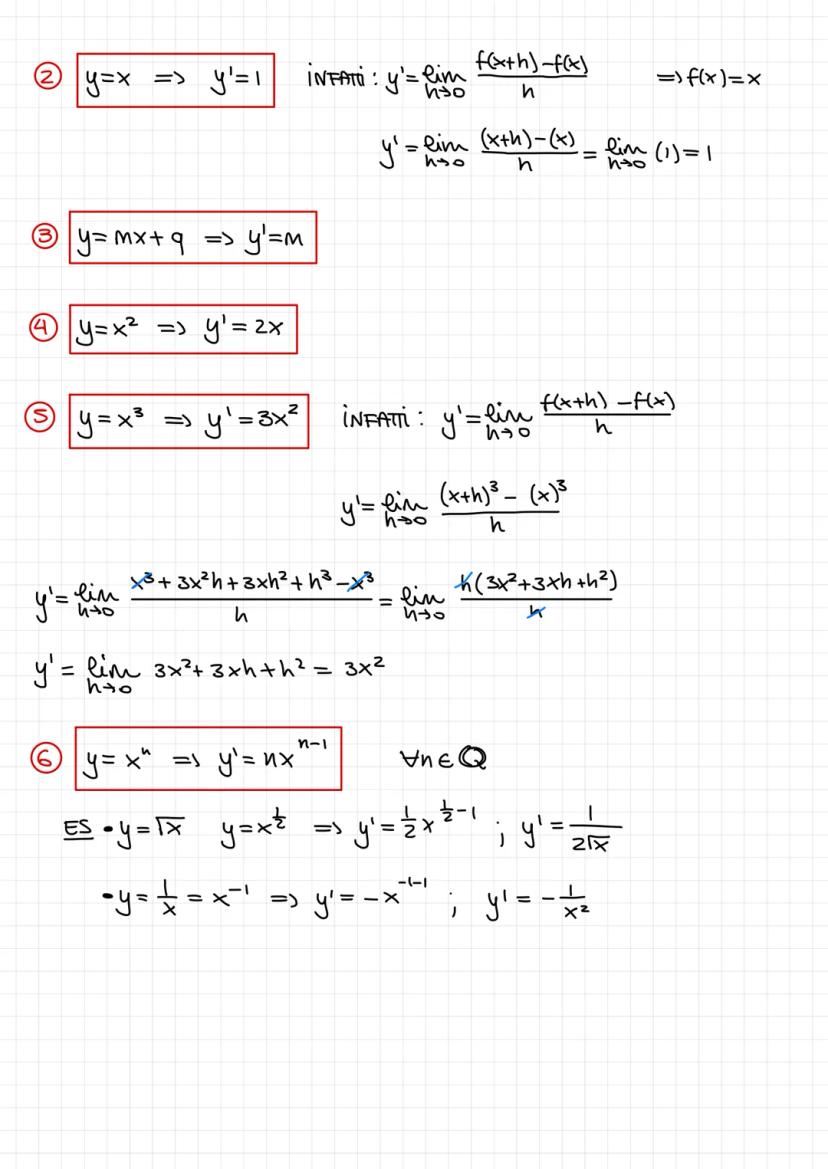 ② y=x => y'=1 INFATTI : y'=lim h→0 f(x+h)-f(x)/h => f(x)=x
y'=lim h→0 (x+h)-(x)/h = lim h→0 (1)=1
③ y=mx+q => y'=m
④ y=x² => y'=2x
⑤ y=x³ => y'=3x² INFATTI : y'=lim h→0 f(x+h)-f(x)/h
y'=lim h→0 (x+h)³-(x)³/h
y'=lim h→0 x³+3x²h+3xh²+h³-x³/h = lim h→0 h(3x²+3xh+h²)/h
y'=lim h→0 3x²+3xh+h² = 3x²
⑥ y=xⁿ => y'=nxⁿ⁻¹ ∀n∈ℚ
ES • y=√x y=x^½ => y'=½x^(½-1) ; y'=1/2√x
• y=1/x=x⁻¹ => y'=-x⁻¹⁻¹ ; y'=-1/x²